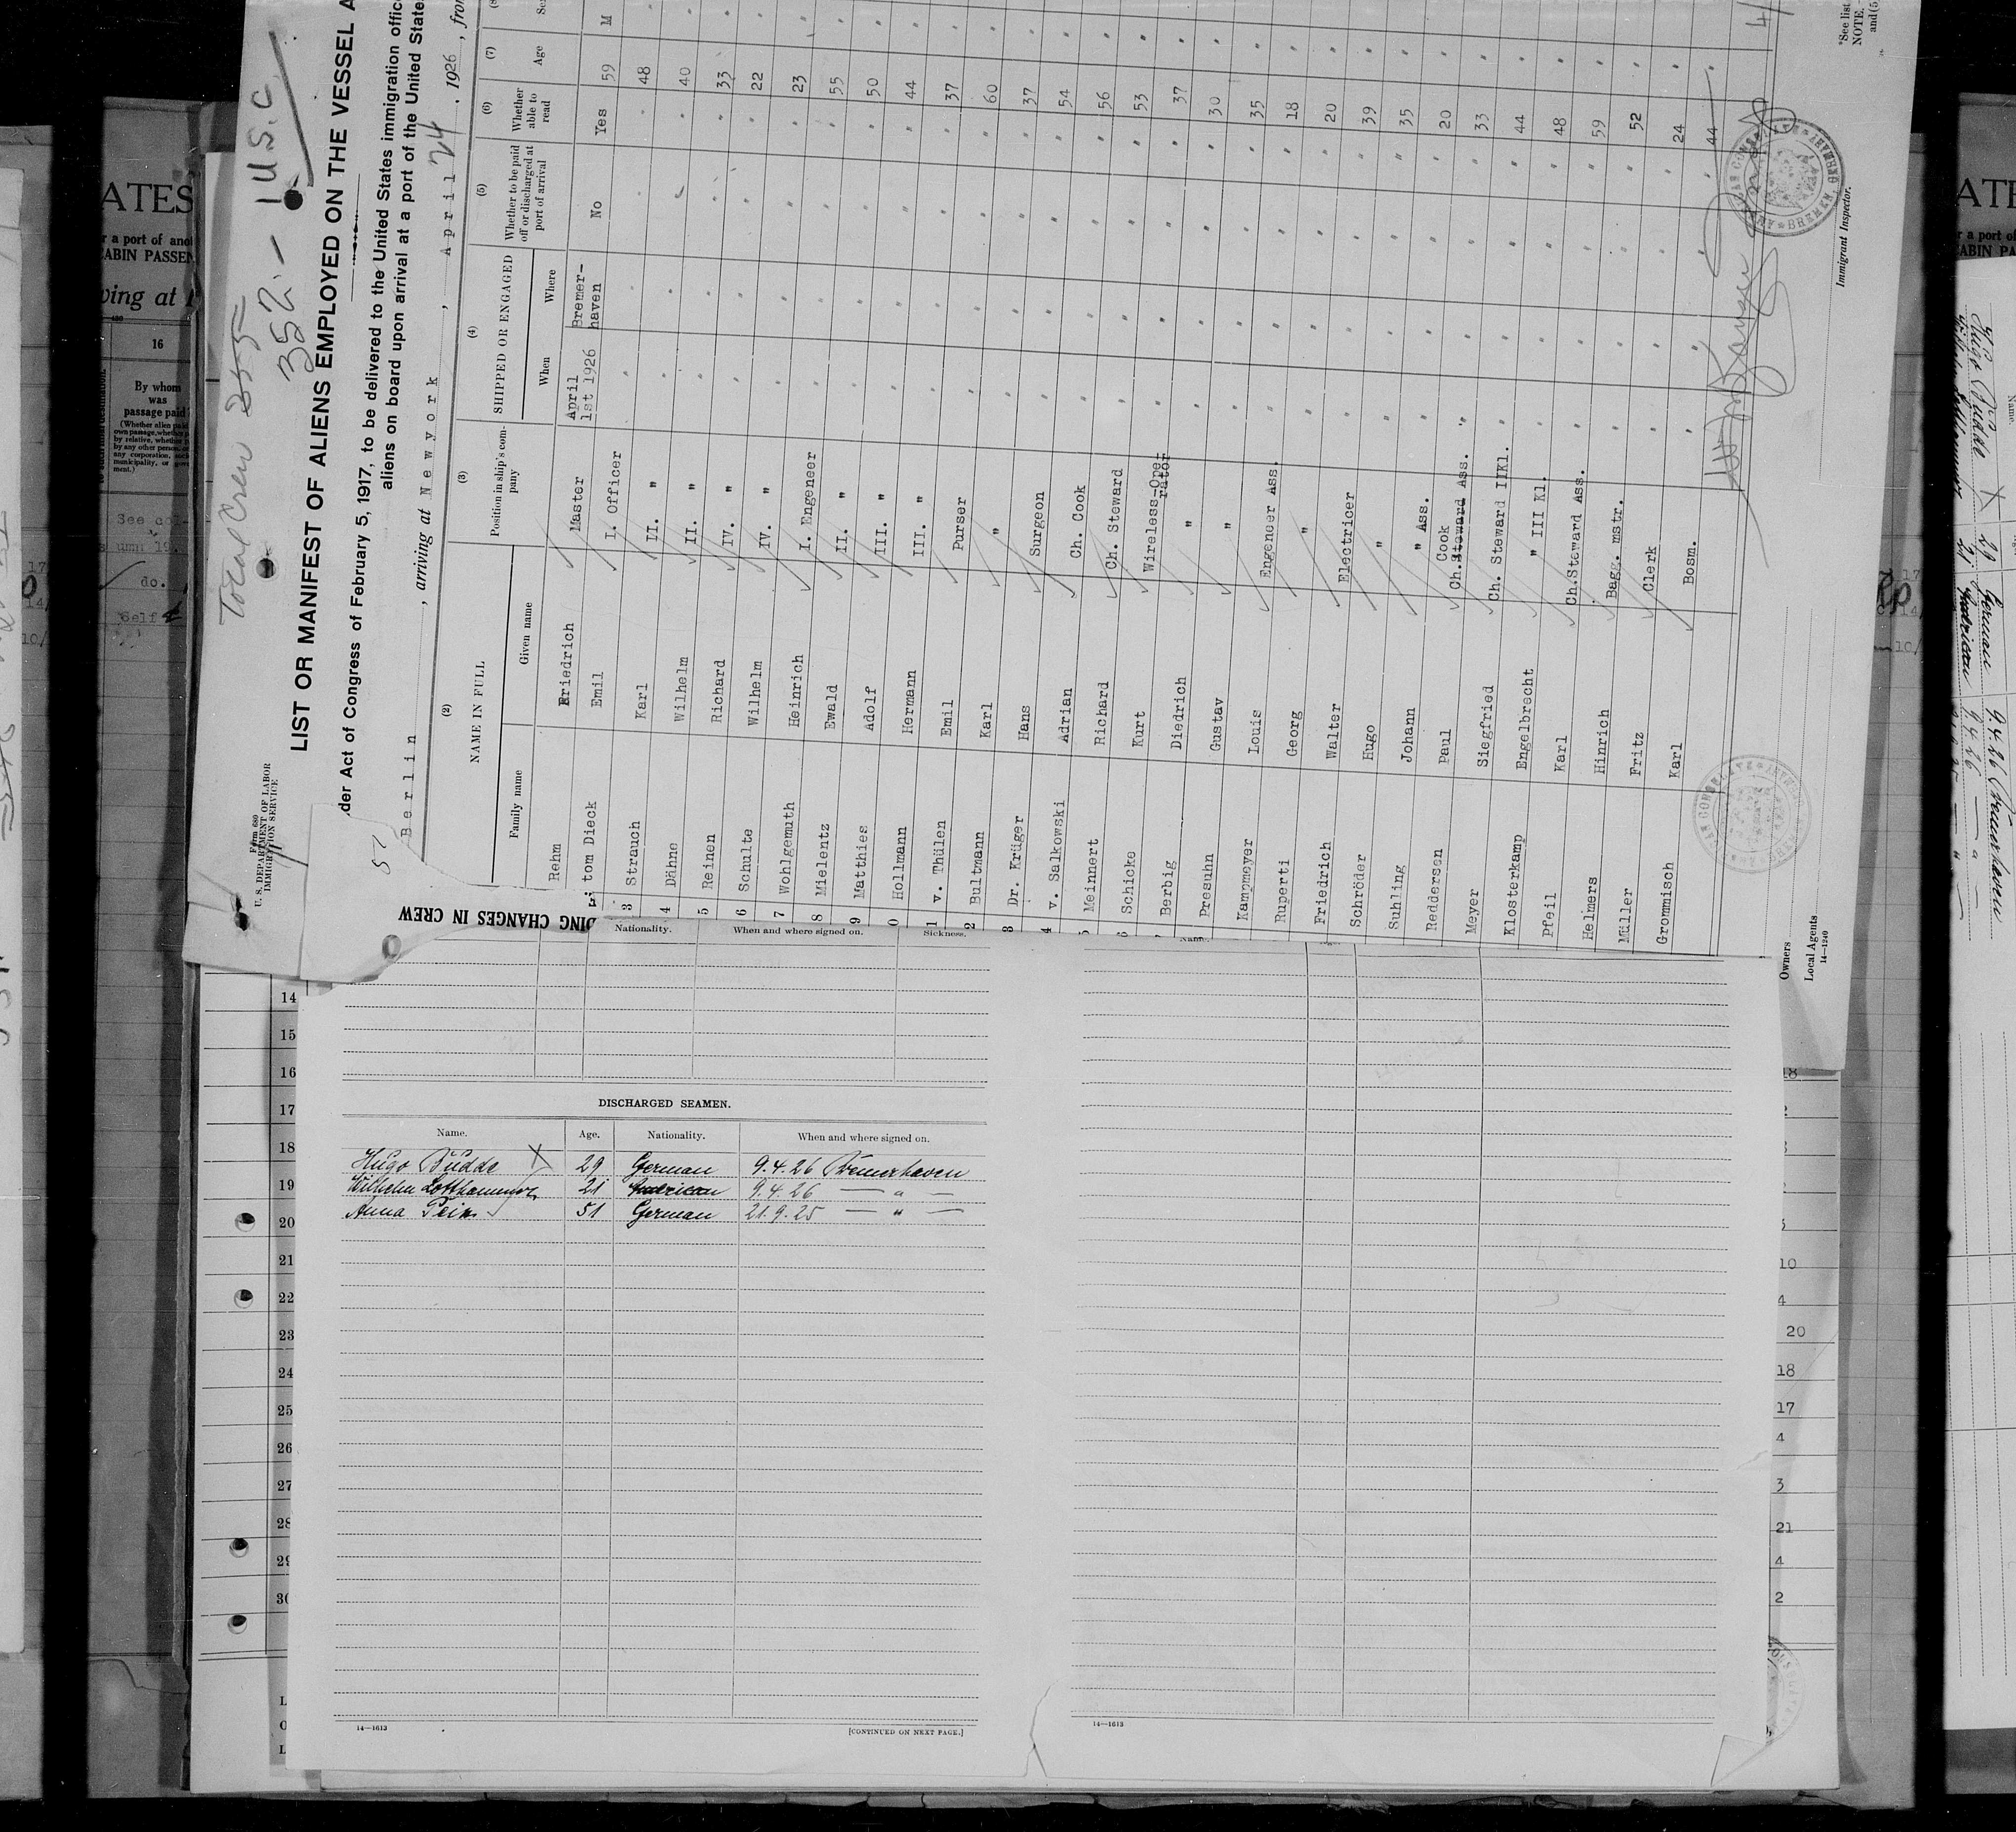 Total Crew 355
352 - 1 U.S.C
Form 680
U. S. DEPARTMENT OF LABOR
IMMIGRATION SERVICE
LIST OR MANIFEST OF ALIENS EMPLOYED ON THE VESSEL A
der Act of Congress of February 5, 1917, to be delivered to the United States immigration offic
aliens on board upon arrival at a port of the United State
Berlin , arriving at Newyork , April 24 . 1926 , from
(2) (3) (4) (5) (6) (7)
NAME IN FULL Position in ship's company SHIPPED OR ENGAGED Whether to be paid off or discharged at port of arrival Whether able to read Age
Family name Given name When Where
Rehm Friedrich Master April 1st 1926 Bremerhaven No Yes 59 M
tom Dieck Emil I. Officer " " " " 48 "
3 Strauch Karl II. " " " " " 40 "
4 Dähne Wilhelm II. " " " " " 33 "
5 Reinen Richard IV. " " " " " 22 "
6 Schulte Wilhelm IV. " " " " " 23 "
7 Wohlgemuth Heinrich I. Engeneer " " " " 55 "
8 Mielentz Ewald II. " " " " " 50 "
9 Matthies Adolf III. " " " " " 44 "
0 Hollmann Hermann III. " " " " " 37 "
1 v. Thülen Emil Purser " " " " 60 "
2 Bultmann Karl " " " " " 37 "
3 Dr. Krüger Hans Surgeon " " " " 54 "
4 v. Salkowski Adrian Ch. Cook " " " " 56 "
5 Meinnert Richard Ch. Steward " " " " 53 "
6 Schicke Kurt Wireless-Operator " " " " 37 "
7 Berbig Diedrich " " " " " 30 "
Presuhn Gustav " " " " " 35 "
Kampmeyer Louis Engeneer Ass. " " " " 18 "
Ruperti Georg " " " " " 20 "
Friedrich Walter Electricer " " " " 39 "
Schröder Hugo " " " " " 35 "
Suhling Johann " Ass. " " " " 20 "
Reddersen Paul Ch. Cook Steward Ass. " " " " 33 "
Meyer Siegfried Ch. Steward IIKl. " " " " 44 "
Klosterkamp Engelbrecht " III Kl. " " " " 48 "
Pfeil Karl Ch.Steward Ass. " " " " 59 "
Helmers Hinrich Bagg. mstr. " " " " 52 "
Müller Fritz Clerk " " " " 24 "
Grommisch Karl Bosm. " " " " 44 "
Immigrant Inspector.
Owners
Local Agents
14—1240
*See list
NOTE.
and (5
DING CHANGES IN CREW
Nationality. When and where signed on. Sickness.
Name.
DISCHARGED SEAMEN.
Name. Age. Nationality. When and where signed on.
Hugo Büdde X 29 German 9.4.26 Bremerhaven
Wilhelm Lotthammer 21 American 9.4.26 — " —
Anna Pein 51 German 21.9.25 — " —
14—1613
[CONTINUED ON NEXT PAGE.]
14—1613
14
15
16
17
18
19
20
21
22
23
24
25
26
27
28
29
30
18
10
4
20
18
17
4
3
21
4
2
ATES
r a port of anot
CABIN PASSEN
ving at
16
By whom
was
passage paid
See col-
umn 19.
do.
Self